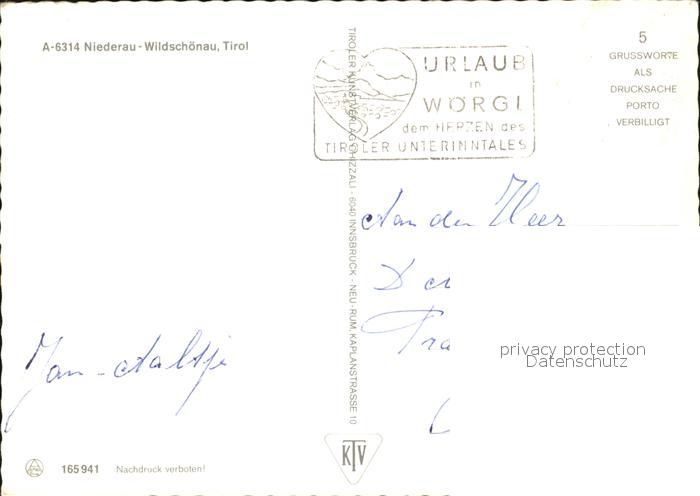 A-6314 Niederau - Wildschönau, Tirol
URLAUB
in
WÖRGL
dem HERZEN des
TIROLER UNTERINNTALES
5
GRUSSWORTE
ALS
DRUCKSACHE
PORTO
VERBILLIGT
TIROLER KUNSTVERLAG CHIZZALI - 6040 INNSBRUCK - NEU-RUM, KAPLANSTRASSE 10
Aan den Heer
Jan - Aaltje
privacy protection
Datenschutz
KTV
165 941 Nachdruck verboten!